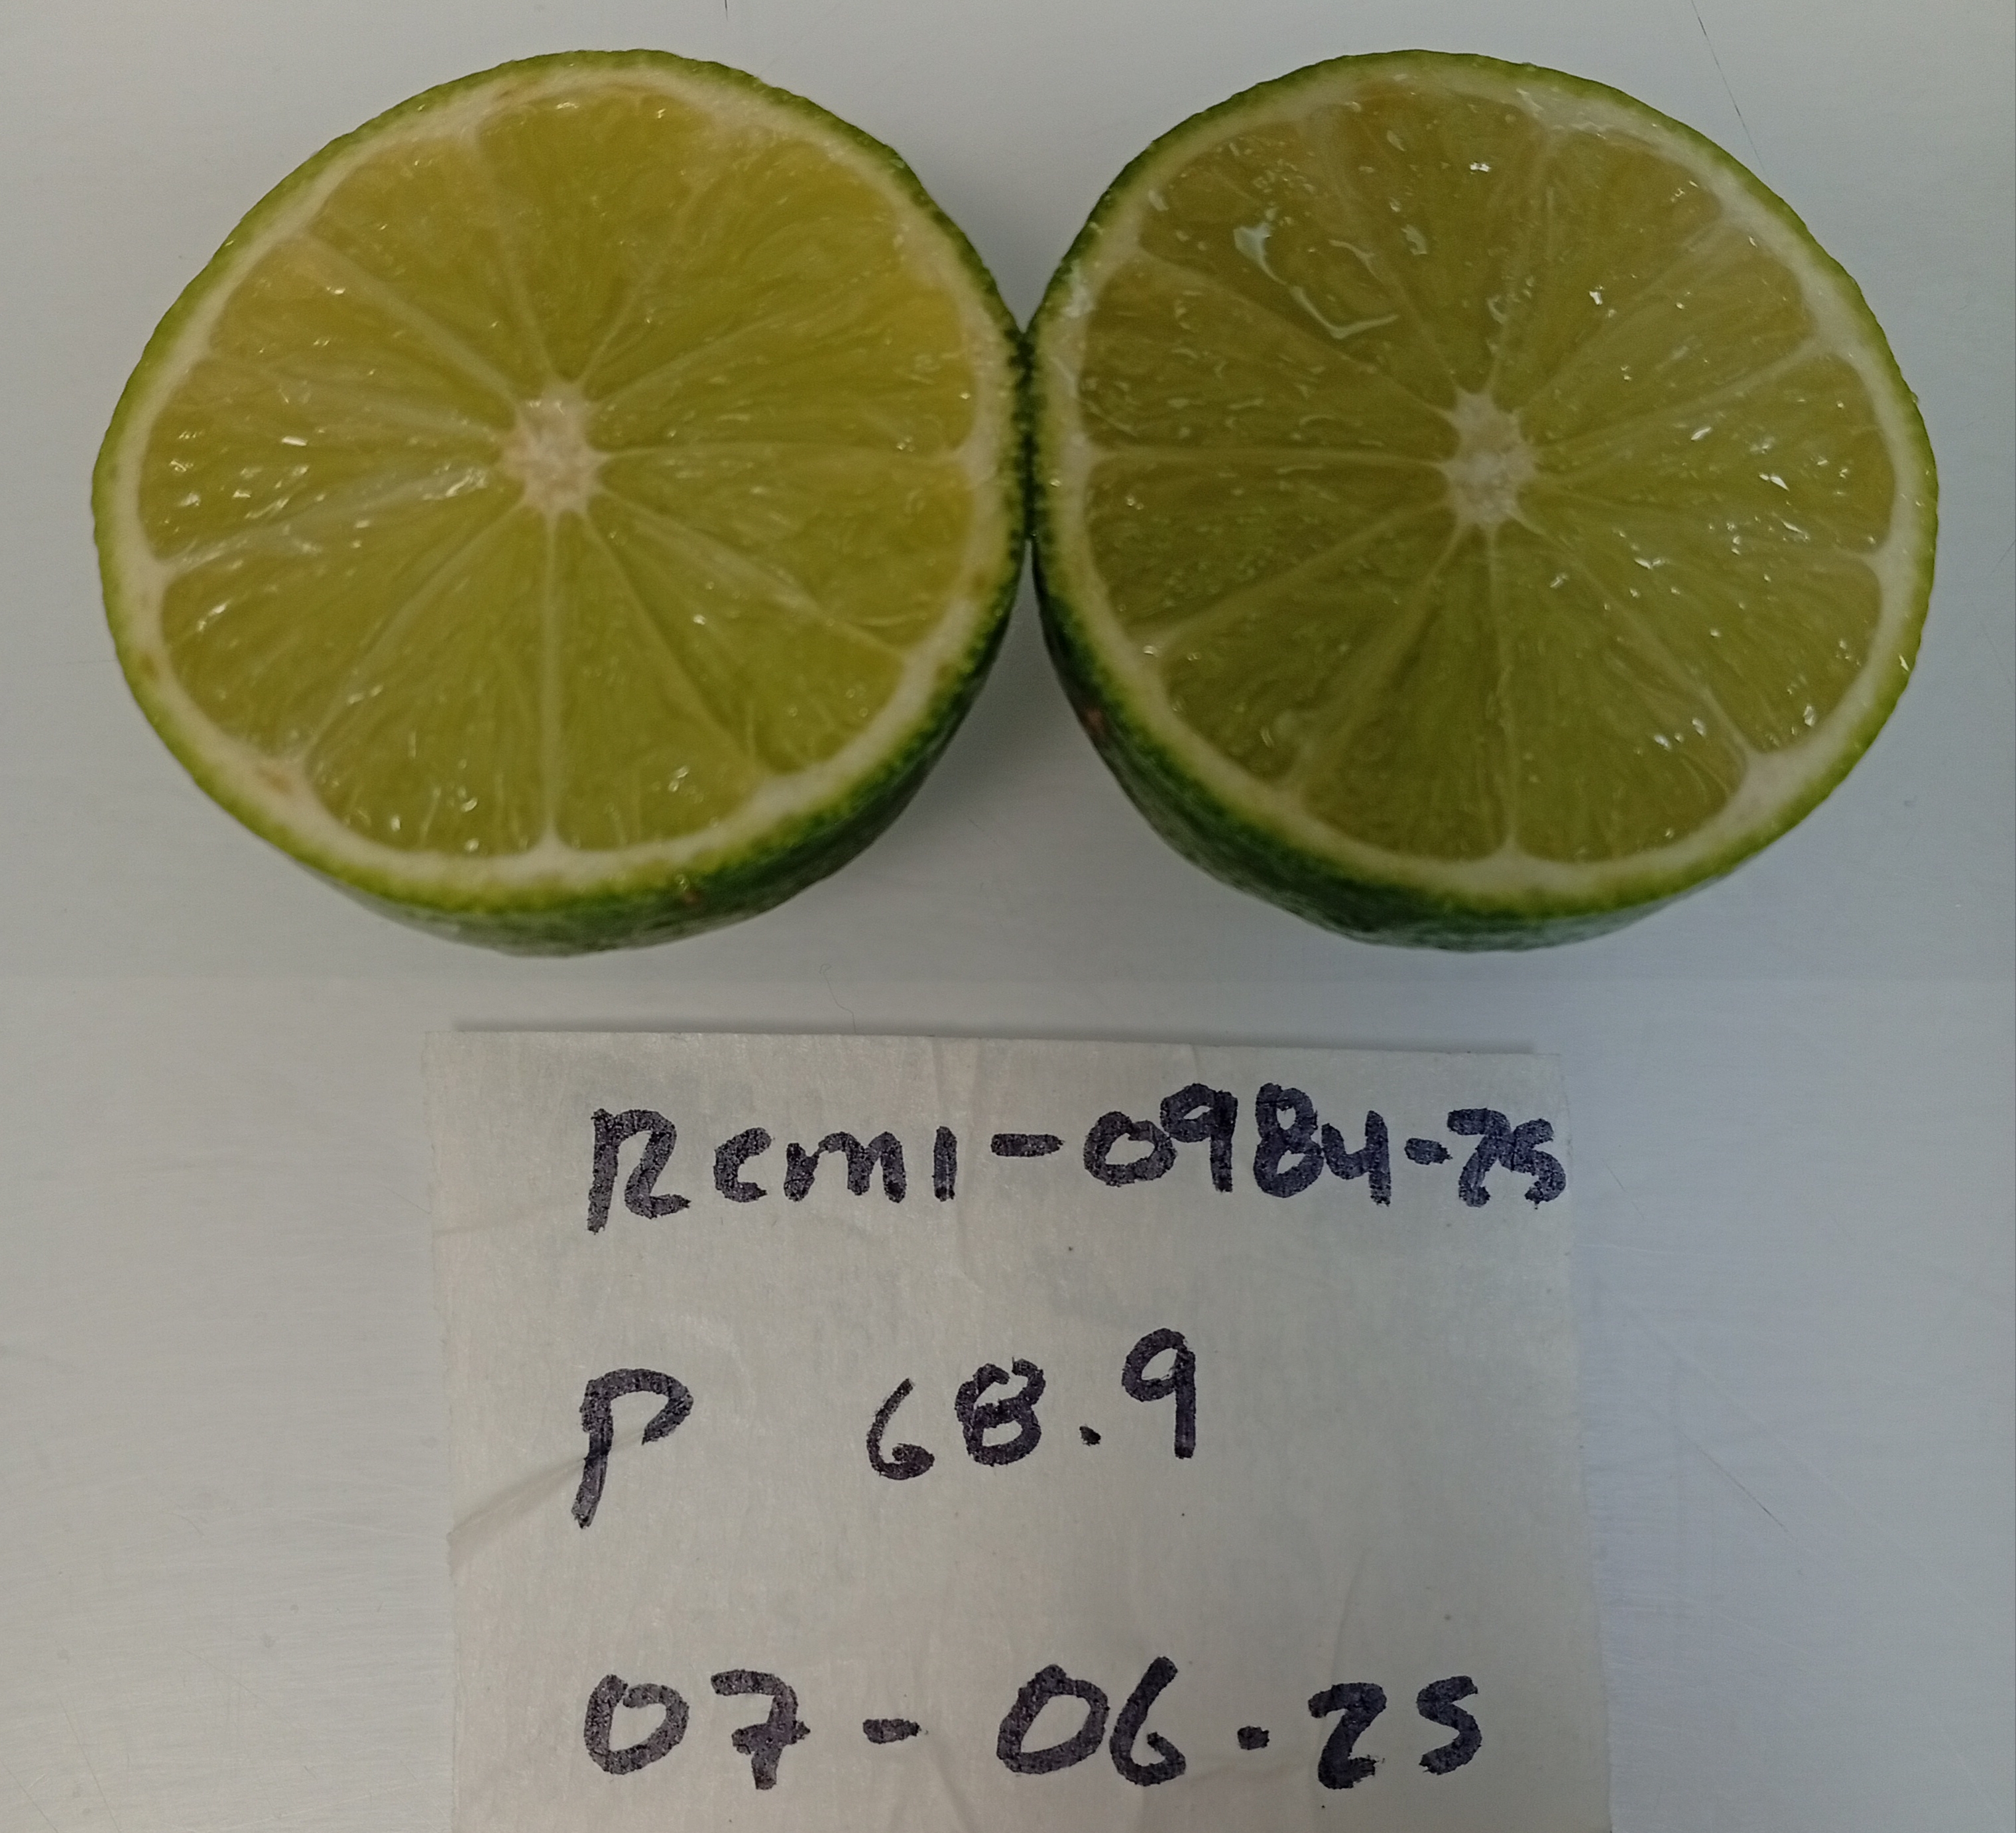 Rcm1-0984-25
P 68.9
07-06-25